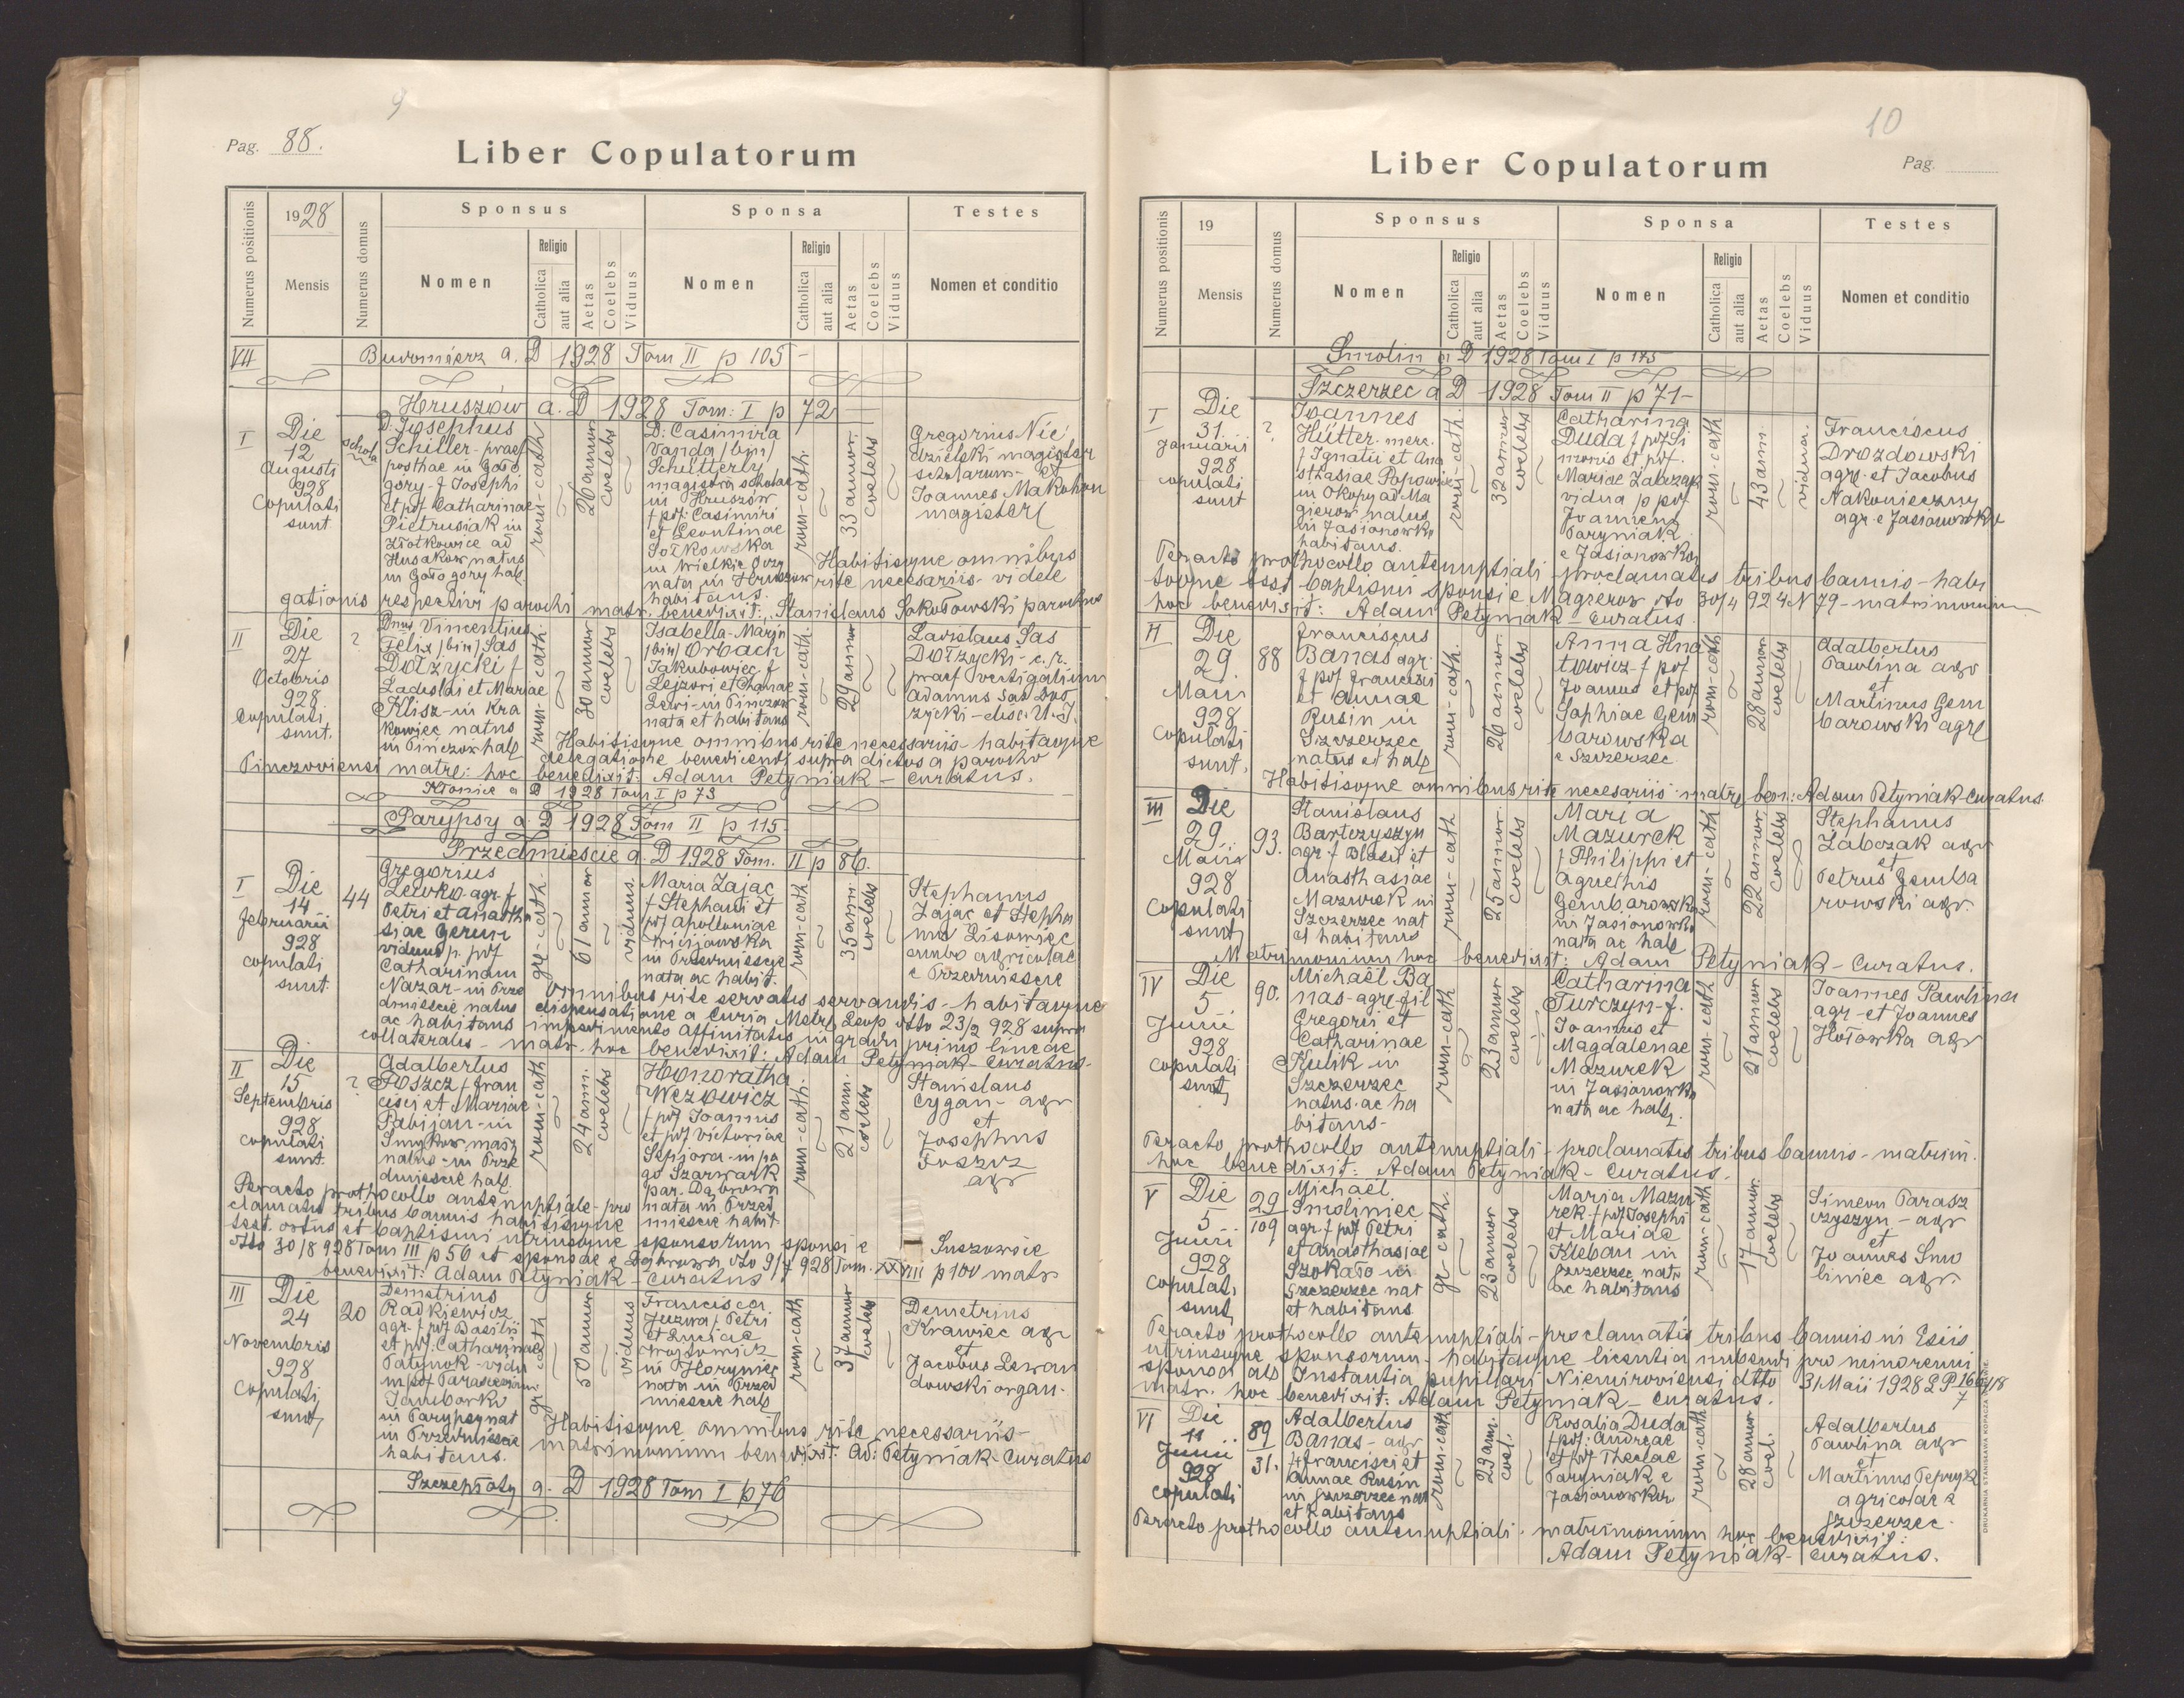 9
Pag. 88.
Liber Copulatorum
Numerus positionis
1928
Mensis
Numerus domus
Sponsus
Nomen
Religio
Catholica
aut alia
Aetas
Coelebs
Viduus
Sponsa
Nomen
Religio
Catholica
aut alia
Aetas
Coelebs
Viduus
Testes
Nomen et conditio
VII
Buwomierz a. D 1928 Tom II p 105 -
Hruszów a. D 1928 Tom: I p 72
I
Die
12
Augusti
928
Copulati
sunt
schola
D. Josephus
Schiller - praef
posthae in Goło
gory - f Josephi
et pdf Catharinae
Pietrusiak in
Złotkowice ad
Husakow natus
in Gołogóry hab
rom-cath
26 annor
coelebs
D: Casimira
Vanda /bin/
Schütterly
magistra scholae
in Hruszów
f pdf: Casimiri
et Leontinae
Sołkowska
in Wielkie Oczy
nata in Hruszow
habitans.
rom-cath.
33 annor.
coelebs
Gregorius Nie
dzielski magister
scholarum - et
Joannes Makohon
magister
Habitisque omnibus
rite necesariis - vi dele
gationis respectivi parochi matr. benedixit: Stanislaus Sokołowski parochus
II
Die
27
Octobris
928
Copulati
sunt.
?
Dnus Vincentius
Felix /bin/ Sas
Dołzycki f
Ladislai et Mariae
Klisz - in Kra
kowiec natus
in Pinczow hab
rom-cath.
30 annor
coelebs
Isabella-Maria
/bin/ Orbach
Jakubowiec f
Lejzori et Chanae
Lewi - in Pinczow
nata et habitans
rom-cath.
29 annor
coelebs
Ladislaus Sas
Dołzycki - c. r.
praef vectigalium
Adamus Sas Doł
zycki - disc. U. J.
Habitisque omnibus rite necessariis - habitaque
delegatione benedicendi supra dictos a parocho
Pinczoviensi matr: hoc benedixit: Adam Petyniak - Curatus.
Kłonice a D 1928 Tom I p 73
Parypsy a. D 1928 Tom II p 115.
Przedmieście a. D 1928 Tom. II p 86.
I
Die
14
Februarii
928
copulati
sunt
44
Gregorius
Lewko agr. f
Petri et Anasta
siae Gerun
viduus p. pdf
Catharinam
Nazar - in Prze
dmieście natus
ac habitans
gr-cath.
61 annor
viduus.
Maria Zajac
f Stephani et
pdf Apolloniae
Wiśniowska
in Przedmieście
nata ac habit.
rom-cath
35 ann.
coelebs
Stephanus
Zajac et Stepha
nus Lisowiec
ambo agricolae
e Przedmieście
Omnibus rite servatis servandis - habitaque
dispensatione a Curia Metr Leop dtto 23/2 928 super
impedimento affinitatis in gradu primo lineae
collateralis - matr. hoc benedixit: Adam Petyniak - Curatus -
II
Die
15
Septembris
928
copulati
sunt.
?
Adalbertus
Foszcz f Fran
cisci et Mariae
Fabijan - in
Smyków małz
natus - in Prze
dmieście hab.
rom-cath
24 ann.
coelebs
Honoratha
Węzowicz
f pdf Joannis
et pdf Victoriae
Sępiora - in pa
go Szarwark
par. Dąbrowa
nata in Przed
mieście habit
rom-cath.
21 ann.
coelebs
Stanislaus
Cygan - agr
et
Josephus
Foszcz
agr
Peracto prothocollo antenuptiale - pro
clamatis tribus bannis habitisque
test. ortus et baptismi utriusque sponsorum sponsi e Suszowcie
dtto 30/8 928 Tom III p 56 et sponsae e Dąbrowa dto 9/7 928 Tom. XXVIII p 100 matr
benedixit: Adam Petyniak - Curatus
III
Die
24
Novembris
928
Copulati
sunt
20
Demetrius
Radkiewicz
agr - f pdf Basilii
et pdf: Catharinae
Patynok - vidu
m pdf Parascevam
Jamborki
in Parypsy nat
in Przedmieście
habitans.
gr cath
50 annor
viduus
Francisca
Juzwa f Petri
et Luciae
Wojtowicz
in Horyniec
nata in Przed
mieście hab
rom-cath
37 annor
coelebs
Demetrius
Krawiec agr
et
Jacobus Lewan
dowski organ.
Habitisque omnibus rite necessariis -
matrimonium benedixit: Ad: Petyniak - Curatus
Szczepłoty a. D 1928 Tom I p 76
10
Liber Copulatorum
Pag.
Numerus positionis
19
Mensis
Numerus domus
Sponsus
Nomen
Religio
Catholica
aut alia
Aetas
Coelebs
Viduus
Sponsa
Nomen
Religio
Catholica
aut alia
Aetas
Coelebs
Viduus
Testes
Nomen et conditio
Smolin a D 1928 Tom I p 175 -
Szczerzec a D 1928 Tom II p 71 -
I
Die
31.
Januaris
928
copulati
sunt
?
Joannes
Hütter - merc.
f Ignatii et Ana
sthasiae Popowicz
in Okopy ad Ma
gierow natus
in Jasionowka
habitans.
rom-cath.
32 annor
coelebs
Catharina
Duda f pdf Si
monis et pdf.
Mariae Zabczak
vidua p pdf
Joannem
Paryniak
e Jasionowka
rom-cath
43 ann.
vidua.
Franciscus
Drozdowski
agr. et Jacobus
Nakonieczny
agr. e Jasionowka
Peracto prothocollo antenuptiali - proclamatis tribus bannis - habi
toque test baptismi sponsi e Magierow dto 30/4 924 N 79 - matrimonium
hoc benedixit: Adam Petyniak - Curatus.
II
Die
29.
Maii
928
Copulati
sunt.
88
Franciscus
Banas agr.
f pdf Francisci
et Annae
Rusin in
Szczerzec
natus et hab
rom-cath.
26 annor.
coelebs
Anna Hna
towicz - f pdf
Joannis et pdf
Sophiae Gem
barowska
e Szczerzec
rom-cath
28 annor
coelebs
Adalbertus
Pawlina agr
et
Martinus Gem
barowski agr
Habitisque omnibus rite necesariis matr ben: Adam Petyniak - Curatus.
III
Die
29
Maii
928
Copulati
sunt
93.
Stanislaus
Bartczyszyn
agr - f Blasii et
Anasthasiae
Mazurek in
Szczerzec nat
et habitans
rom-cath
25 annor.
coelebs
Maria
Mazurek
f Philippi et
Agnethis
Gembarowska
in Jasionowka
nata ac hab
rom-cath
22 annor
coelebs
Stephanus
Zabczak agr
et
Petrus Gemba
rowski agr.
Matrimonium hoc benedixit: Adam Petyniak - Curatus.
IV
Die
5
Junii
928
copulati
sunt
90.
Michaël Ba
nas - agr - fil
Gregorii et
Catharinae
Kulik in
Szczerzec
natus ac ha
bitans -
rom-cath
23 annor
coelebs
Catharina
Turczyn - f.
Joannis et
Magdalenae
Mazurek
in Jasionowka
nata ac hab.
rom-cath
21 annor
coelebs
Joannes Pawlina
agr - et Joannes
Hołowka agr
Peracto prothocollo antenuptiali - proclamatis tribus bannis - matrim.
hoc benedixit: Adam Petyniak - Curatus.
V
Die
5
Junii
928
Copulati
sunt
29
109
Michaël
Smoliniec
agr. f pdf Petri
et Anasthasiae
Szokało in
Szczerzec nat
et habitans
gr cath.
23 annor
coelebs
Maria Mazu
rek - f pdf Josephi
et Mariae
Kleban in
Szczerzec nata
ac habitans
rom-cath
17 annor
coelebs
Simeon Tarasz
czyszyn - agr
et
Joannes Smo
liniec agr
Peracto prothocollo antenuptiali - proclamatis tribus bannis in Esiis
utriusque sponsorum - habitaque licentia nubendi pro minorenni
sponsa ab Instantia pupillari Niemiroviensi dtto 31 Maii 1928 L P 166/18
7
matr. hoc benedixit: Adam Petyniak - Curatus.
VI
Die
11
Junii
928
copulati
89
31.
Adalbertus
Banas - agr
f Francisci et
Annae Rusin
in Szczerzec nat
et habitans
rom-cath
29 ann.
coel.
Rosalia Duda
f pdf: Andreae
et pdf Theclae
Paryniak e
Jasionowka
rom-cath
28 annor
coel.
Adalbertus
Pawlina agr
et
Martinus Pepryk
agricolae e
Szczerzec.
Peracto prothocollo antenuptiali - matrimonium hoc benedixit:
Adam Petyniak - Curatus.
DRUKARNIA STANISŁAWA KOPACZA